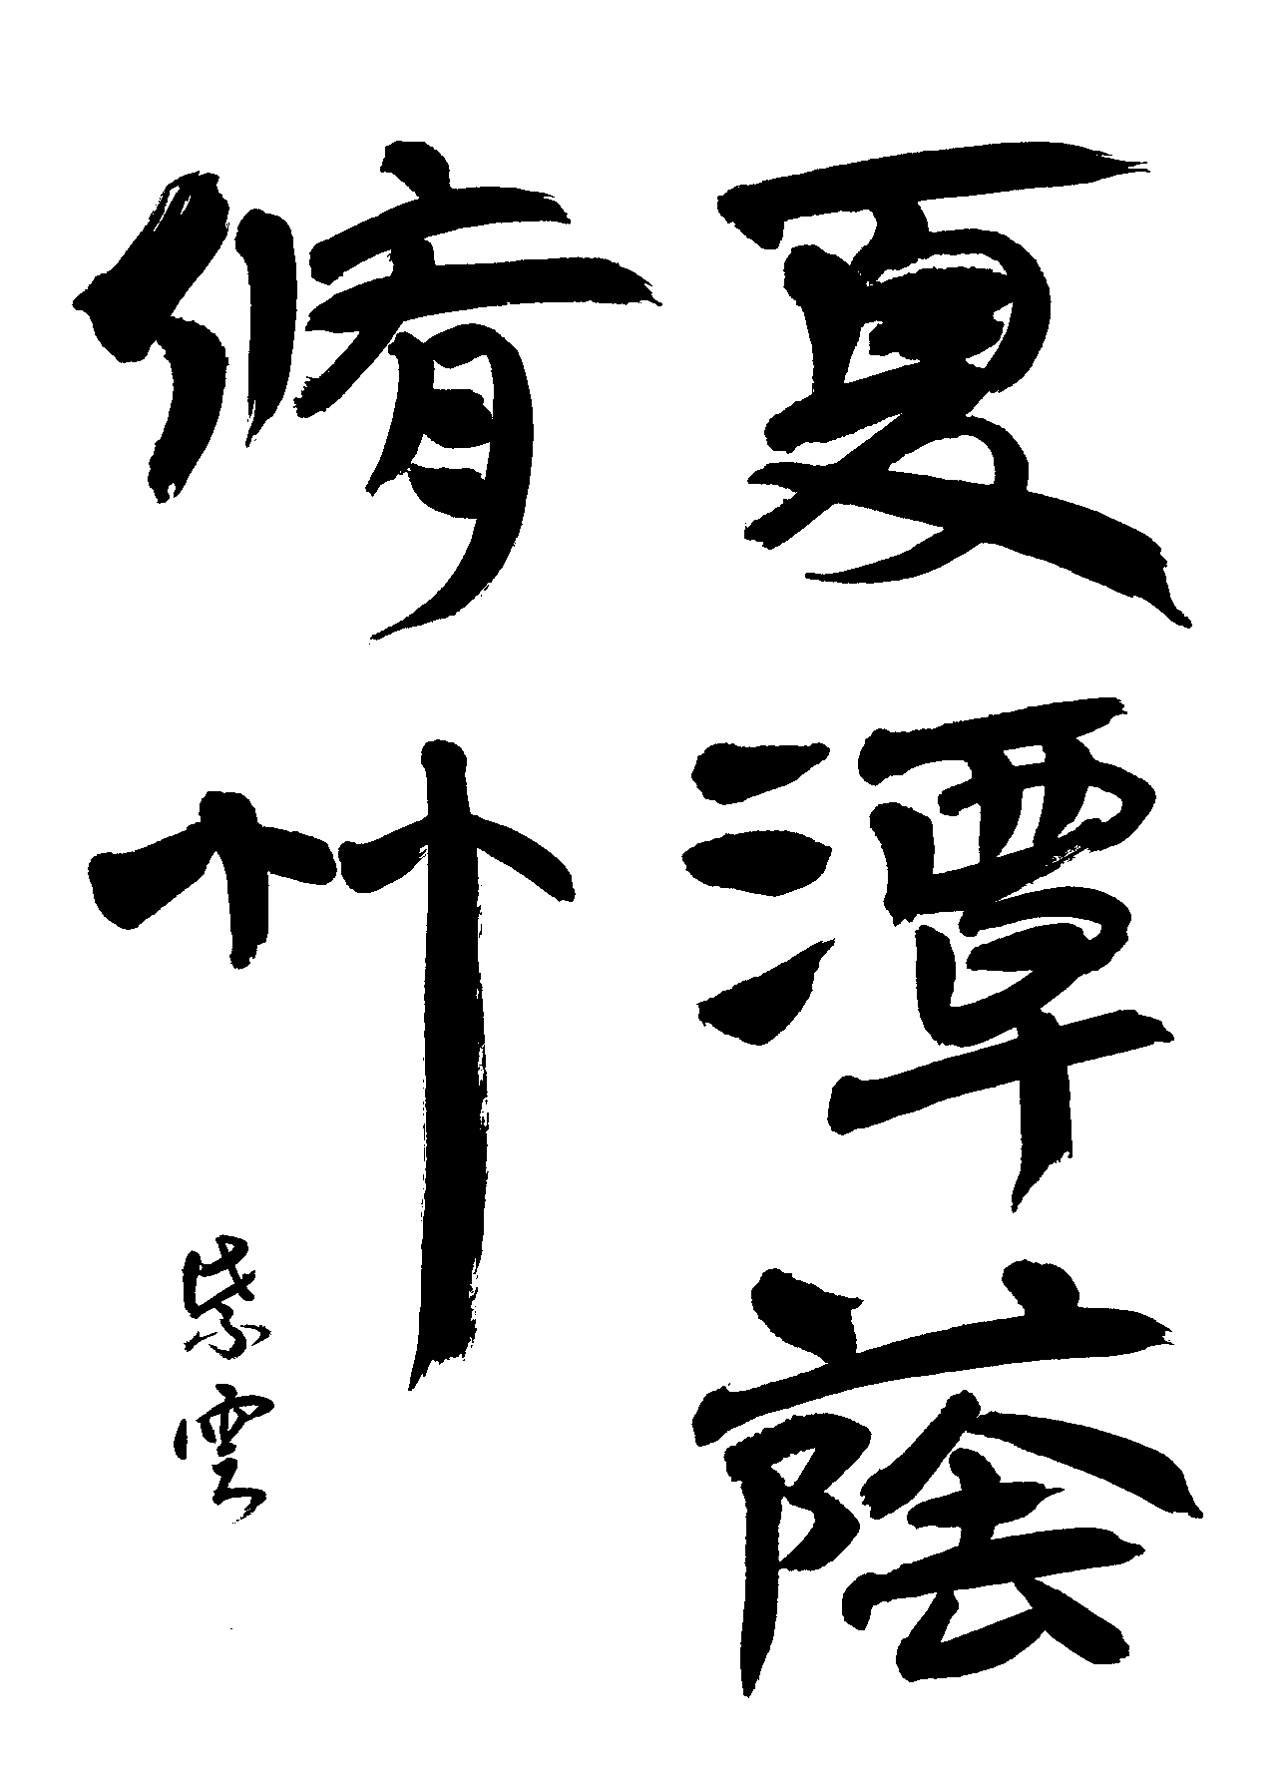 夏潭蔭
脩竹
紫雲